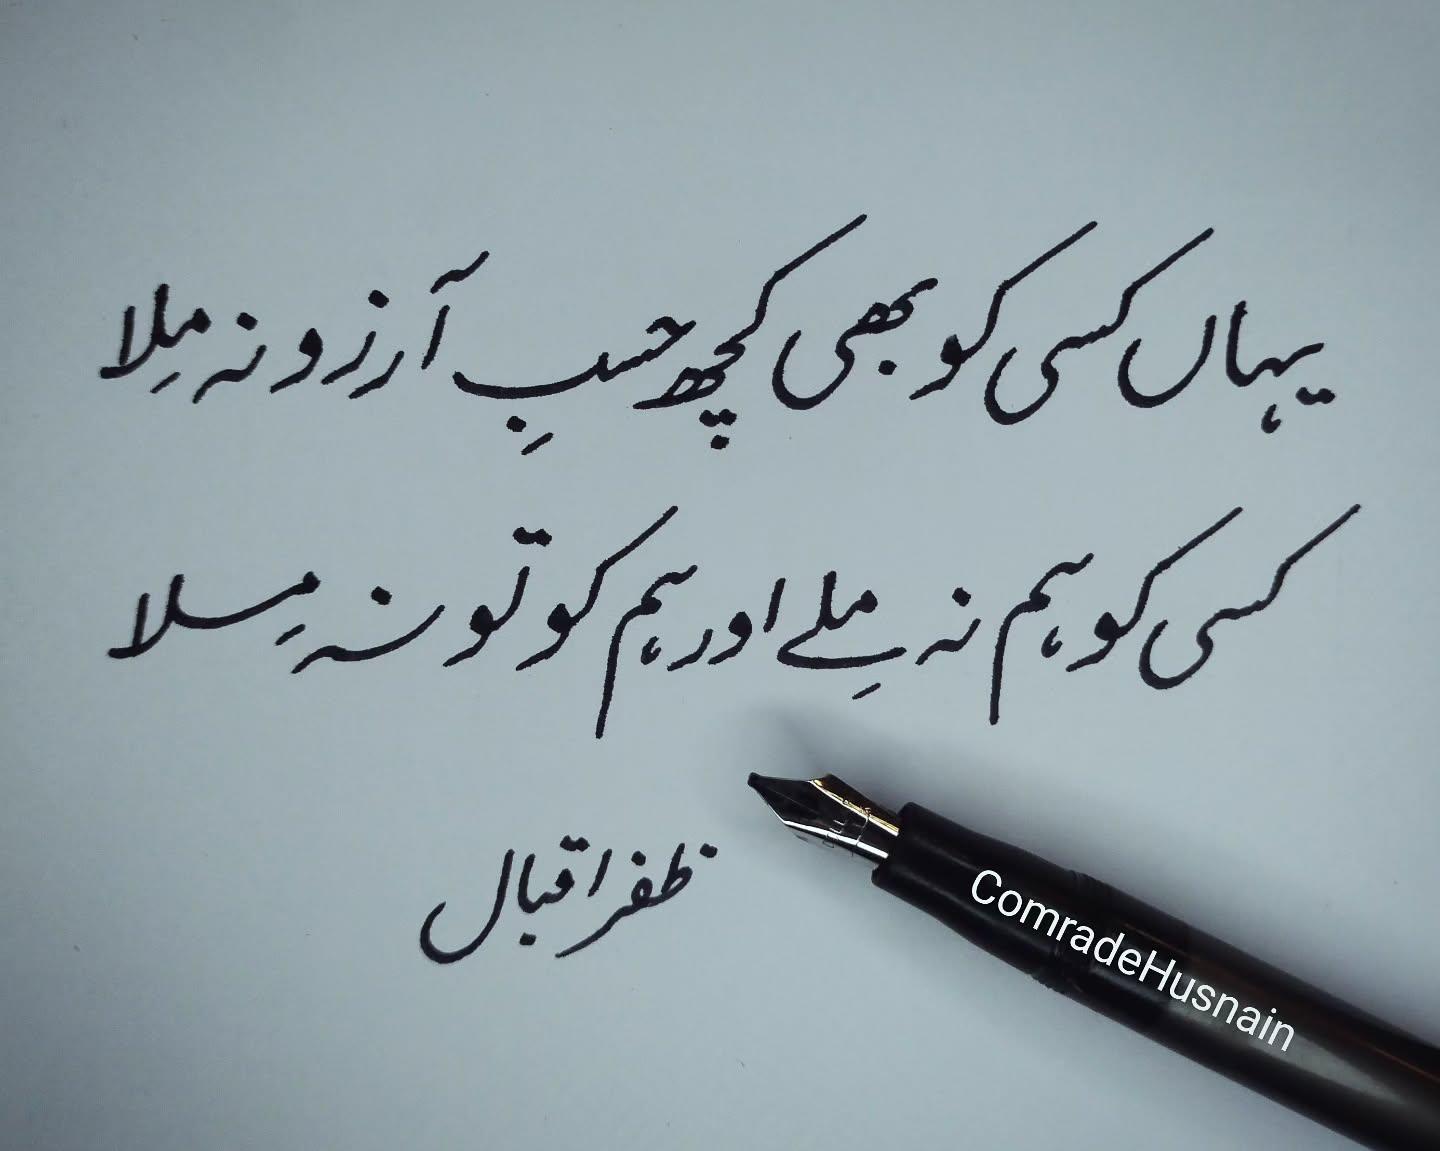 یہاں کسی کو بھی کچھ حسبِ آرزو نہ مِلا
کسی کو ہم نہ مِلے اور ہم کو تو نہ مِلا
ظفر اقبال
ComradeHusnain